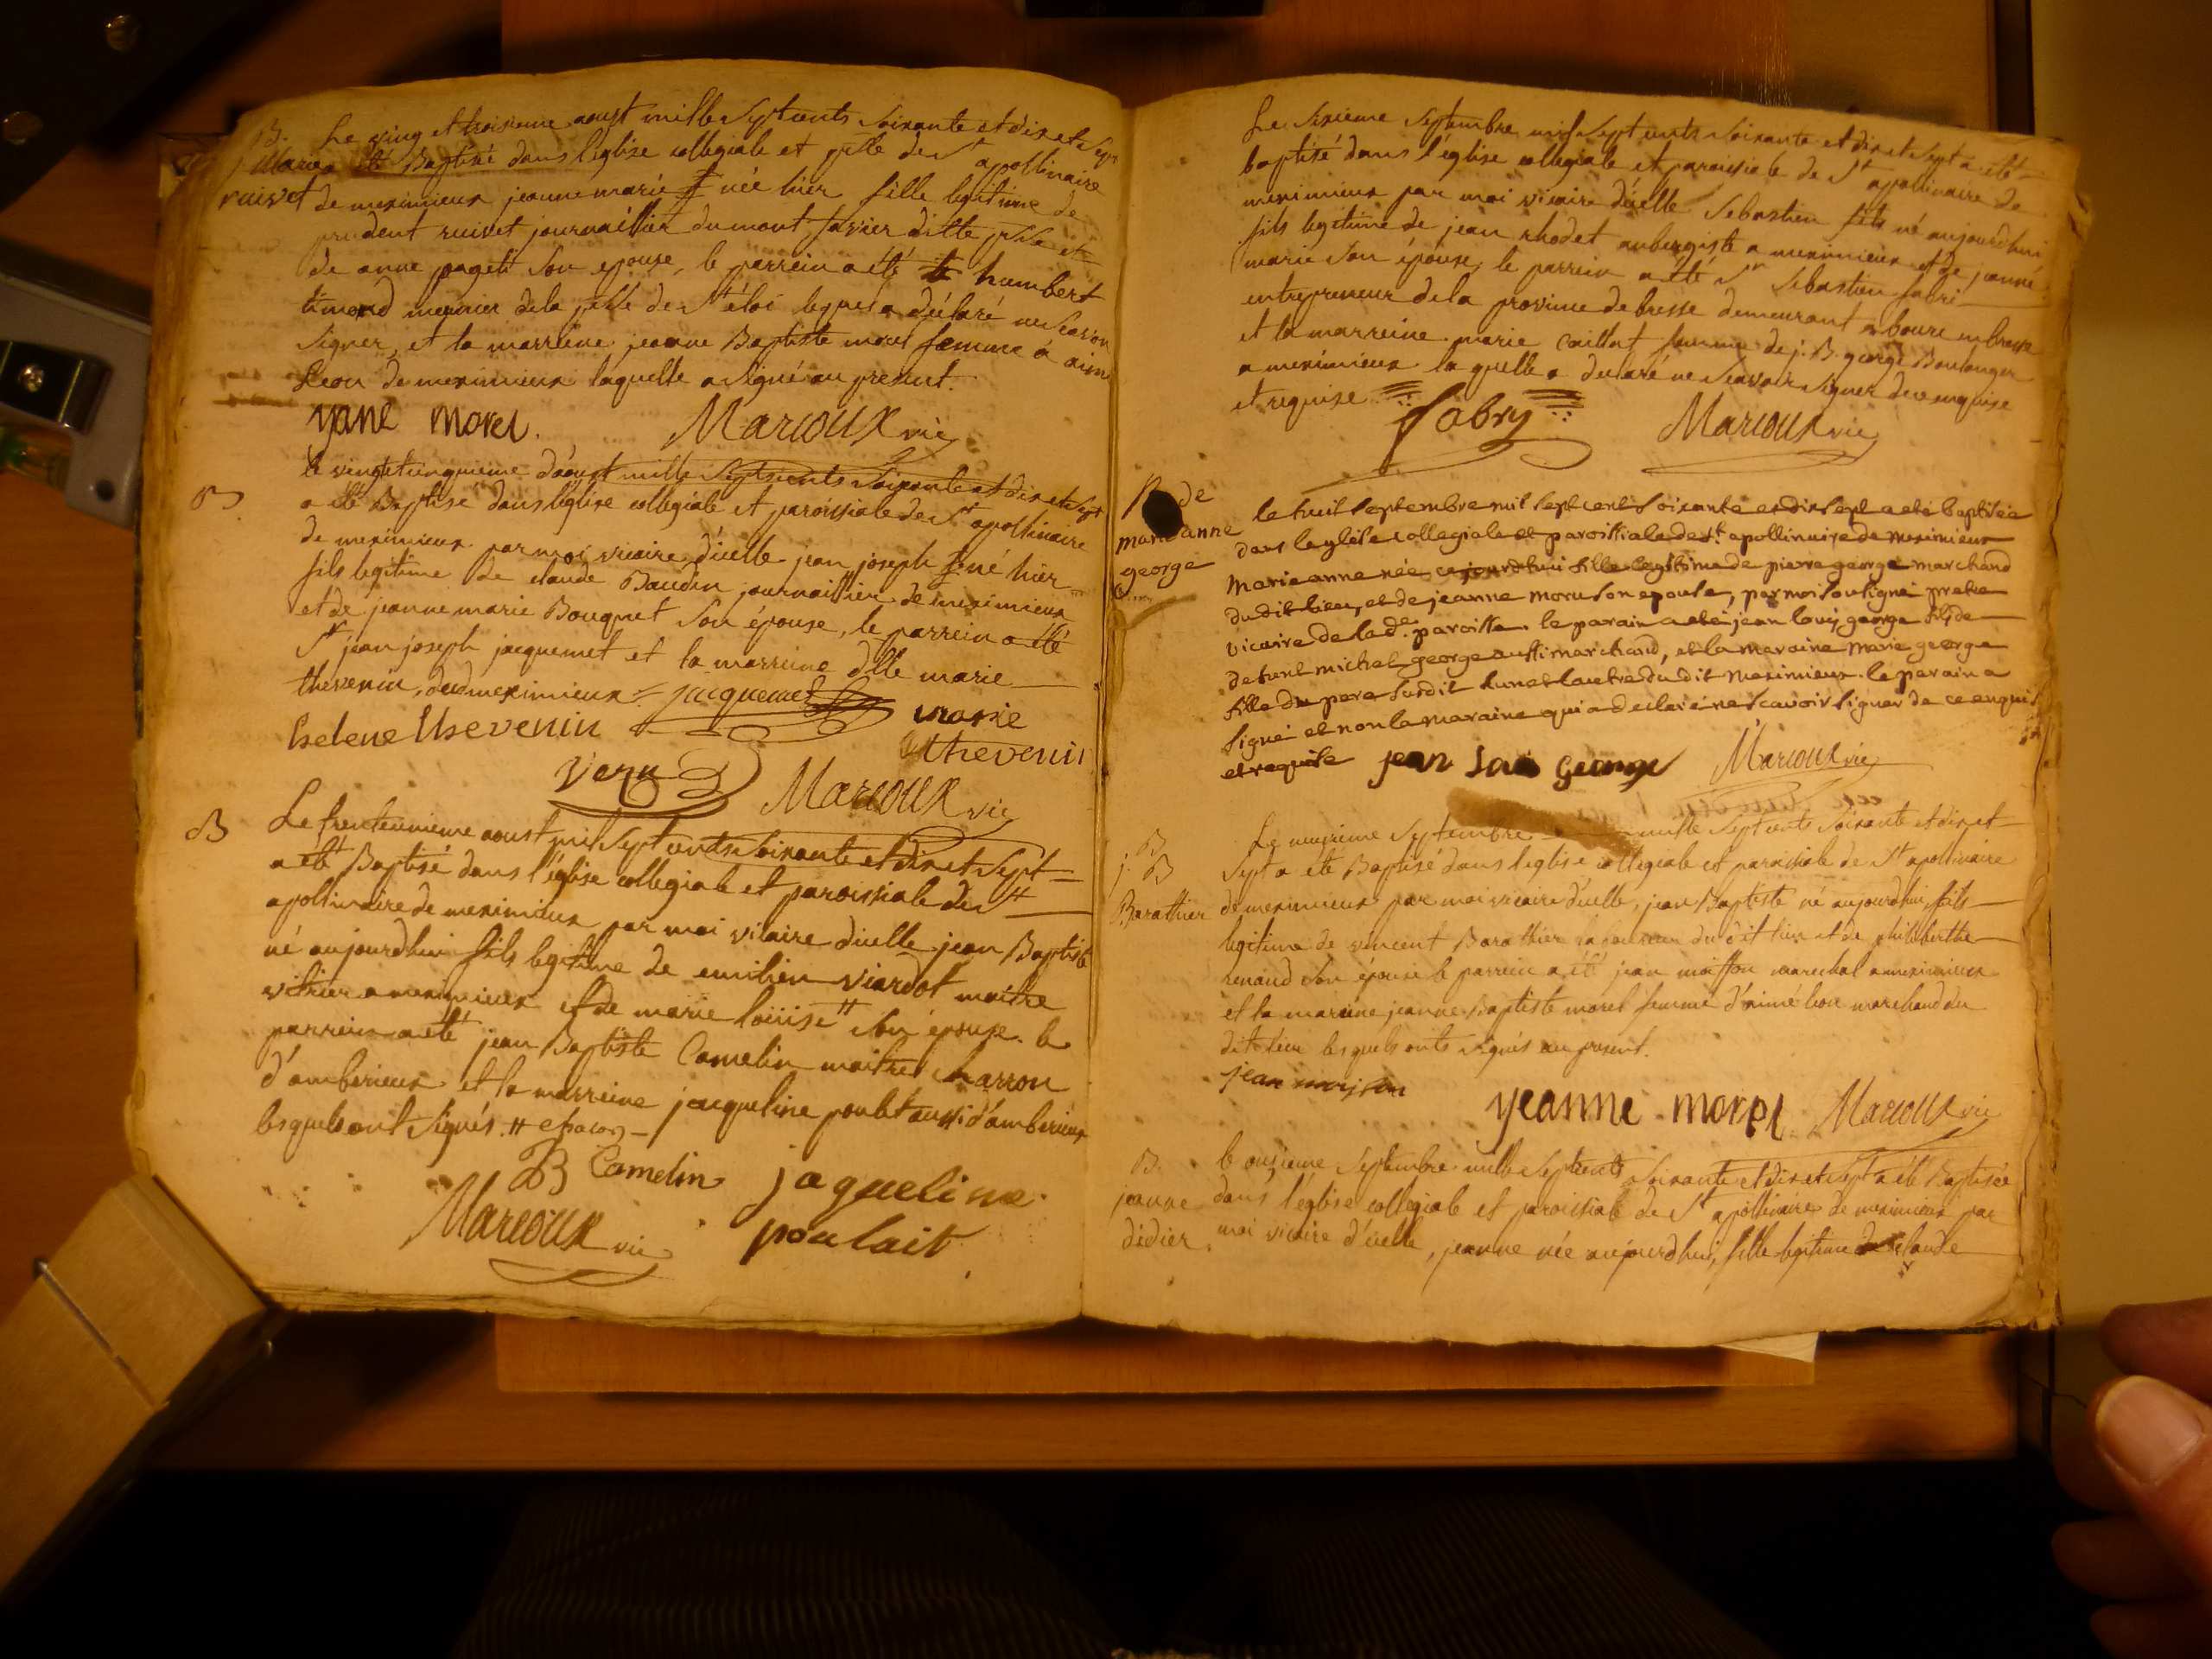 B. Le ving et troisieme aoust mille Septcents Soixante et dix et Sept
j. Marie a été Baptisé dans l'église collegiale et pslle de St apollinaire
ruivet de meximieux jeanne marie née hier fille legitime de
prudent ruivet journaillier du mont favier ditte pslle et
de anne paget Son epouse, le parrein a été humbert
meunier de la pslle de St éloi lequel a déclaré ne Scavoir
Signer, et la marreine jeanne Baptiste morel femme à aimé
Leon de meximieux laquelle a Signé au present.
yane morel. Marcoux vic
B
le vingtetcinquieme d'aoust mille Septcents Soixante et dix et Sept
a été Baptisé dans l'église collegiale et paroissiale de St apollinaire
de meximieux par moi vicaire d'icelle jean joseph né hier
fils legitime de claude Baudin journaillier de meximieux
et de jeanne marie Bouquet Son épouse, le parrein a été
Sr jean joseph jacquemet et la marreine dlle marie
thevenin, de meximieux. jacquemet
helene thevenin marie
thevenin
Marcoux vic
B
Le trenteunieme aoust mil Sept cents Soixante et dix et Sept
a été Baptisé dans l'église collegiale et paroissiale de St
apollinaire de meximieux par moi vicaire d'icelle jean Baptiste
né aujourdhui fils legitime de emilien viardot maitre
vitrier a meximieux et de marie loüise # Son épouse. le
parrein a été jean Baptiste Camelin maitre charron
d'amberieux et la marreine jacqueline poulet aussi d'amberieux
lesquels ont Signés. # chacon
B Camelin jaqueline
Marcoux vic poulait
Le Sixieme Septembre mil Sept cents Soixante et dix et Sept a été
baptisé dans l'église collegiale et paroissiale de St apollinaire de
meximieux par moi vicaire d'icelle Sebastien fils né aujourdhui
fils legitime de jean rhodet aubergiste a meximieux et de jeanne
marie Son épouse, le parrein a été Sr Sebastien fabri
entrepreneur de la province de bresse demeurant a bourc en bresse
et la marreine marie Caillat femme de j. B. george Boulanger
a meximieux laquelle a declaré ne Scavoir Signer de ce enquise
et requise Fabry Marcoux vic
de
marieanne
george
le huit septembre mil sept cent soixante et dix sept a eté baptisée
dans leglise collegiale et paroissiale de st. apollinaire de meximieux
Marie anne née ce jourdhui fille legitime de pierre george marchand
dudit lieu, et de jeanne moru son epouse, par moi soussigné pretre
vicaire de lad.e paroisse. le parain a eté jean louis george fils de
defunt michel george aussi marchand, et la maraine marie george
fille du pere susdit lun et lautre dudit meximieux. le parain a
signé et non la maraine qui a declaré ne scavoir signer de ce enquise
et requise jean Loui George Marcoux vic
B
j. B
Barathier
Le Septembre mille Sept cents Soixante et dix et
Sept a été Baptisé dans l'église collegiale et paroissiale de St apollinaire
de meximieux par moi vicaire d'icelle, jean Baptiste né aujourdhui, fils
legitime de vincent Barathier laboureur dudit lieu et de philiberthe
renaud Son épouse le parrein a été jean maisson marechal a meximieux
et la marreine jeanne Baptiste morel femme d'aimé leon marchand du
dit lieu lesquels onts signés au present.
jean maison
yeanne morel Marcoux vic
B.
jeanne
didier
le onzieme Septembre mille Septcents Soixante et dix et Sept a été Baptisée
dans l'église collegiale et paroissiale de St apollinaire de meximieux par
moi vicaire d'icelle, jeanne née aujourdhui, fille legitime de claude